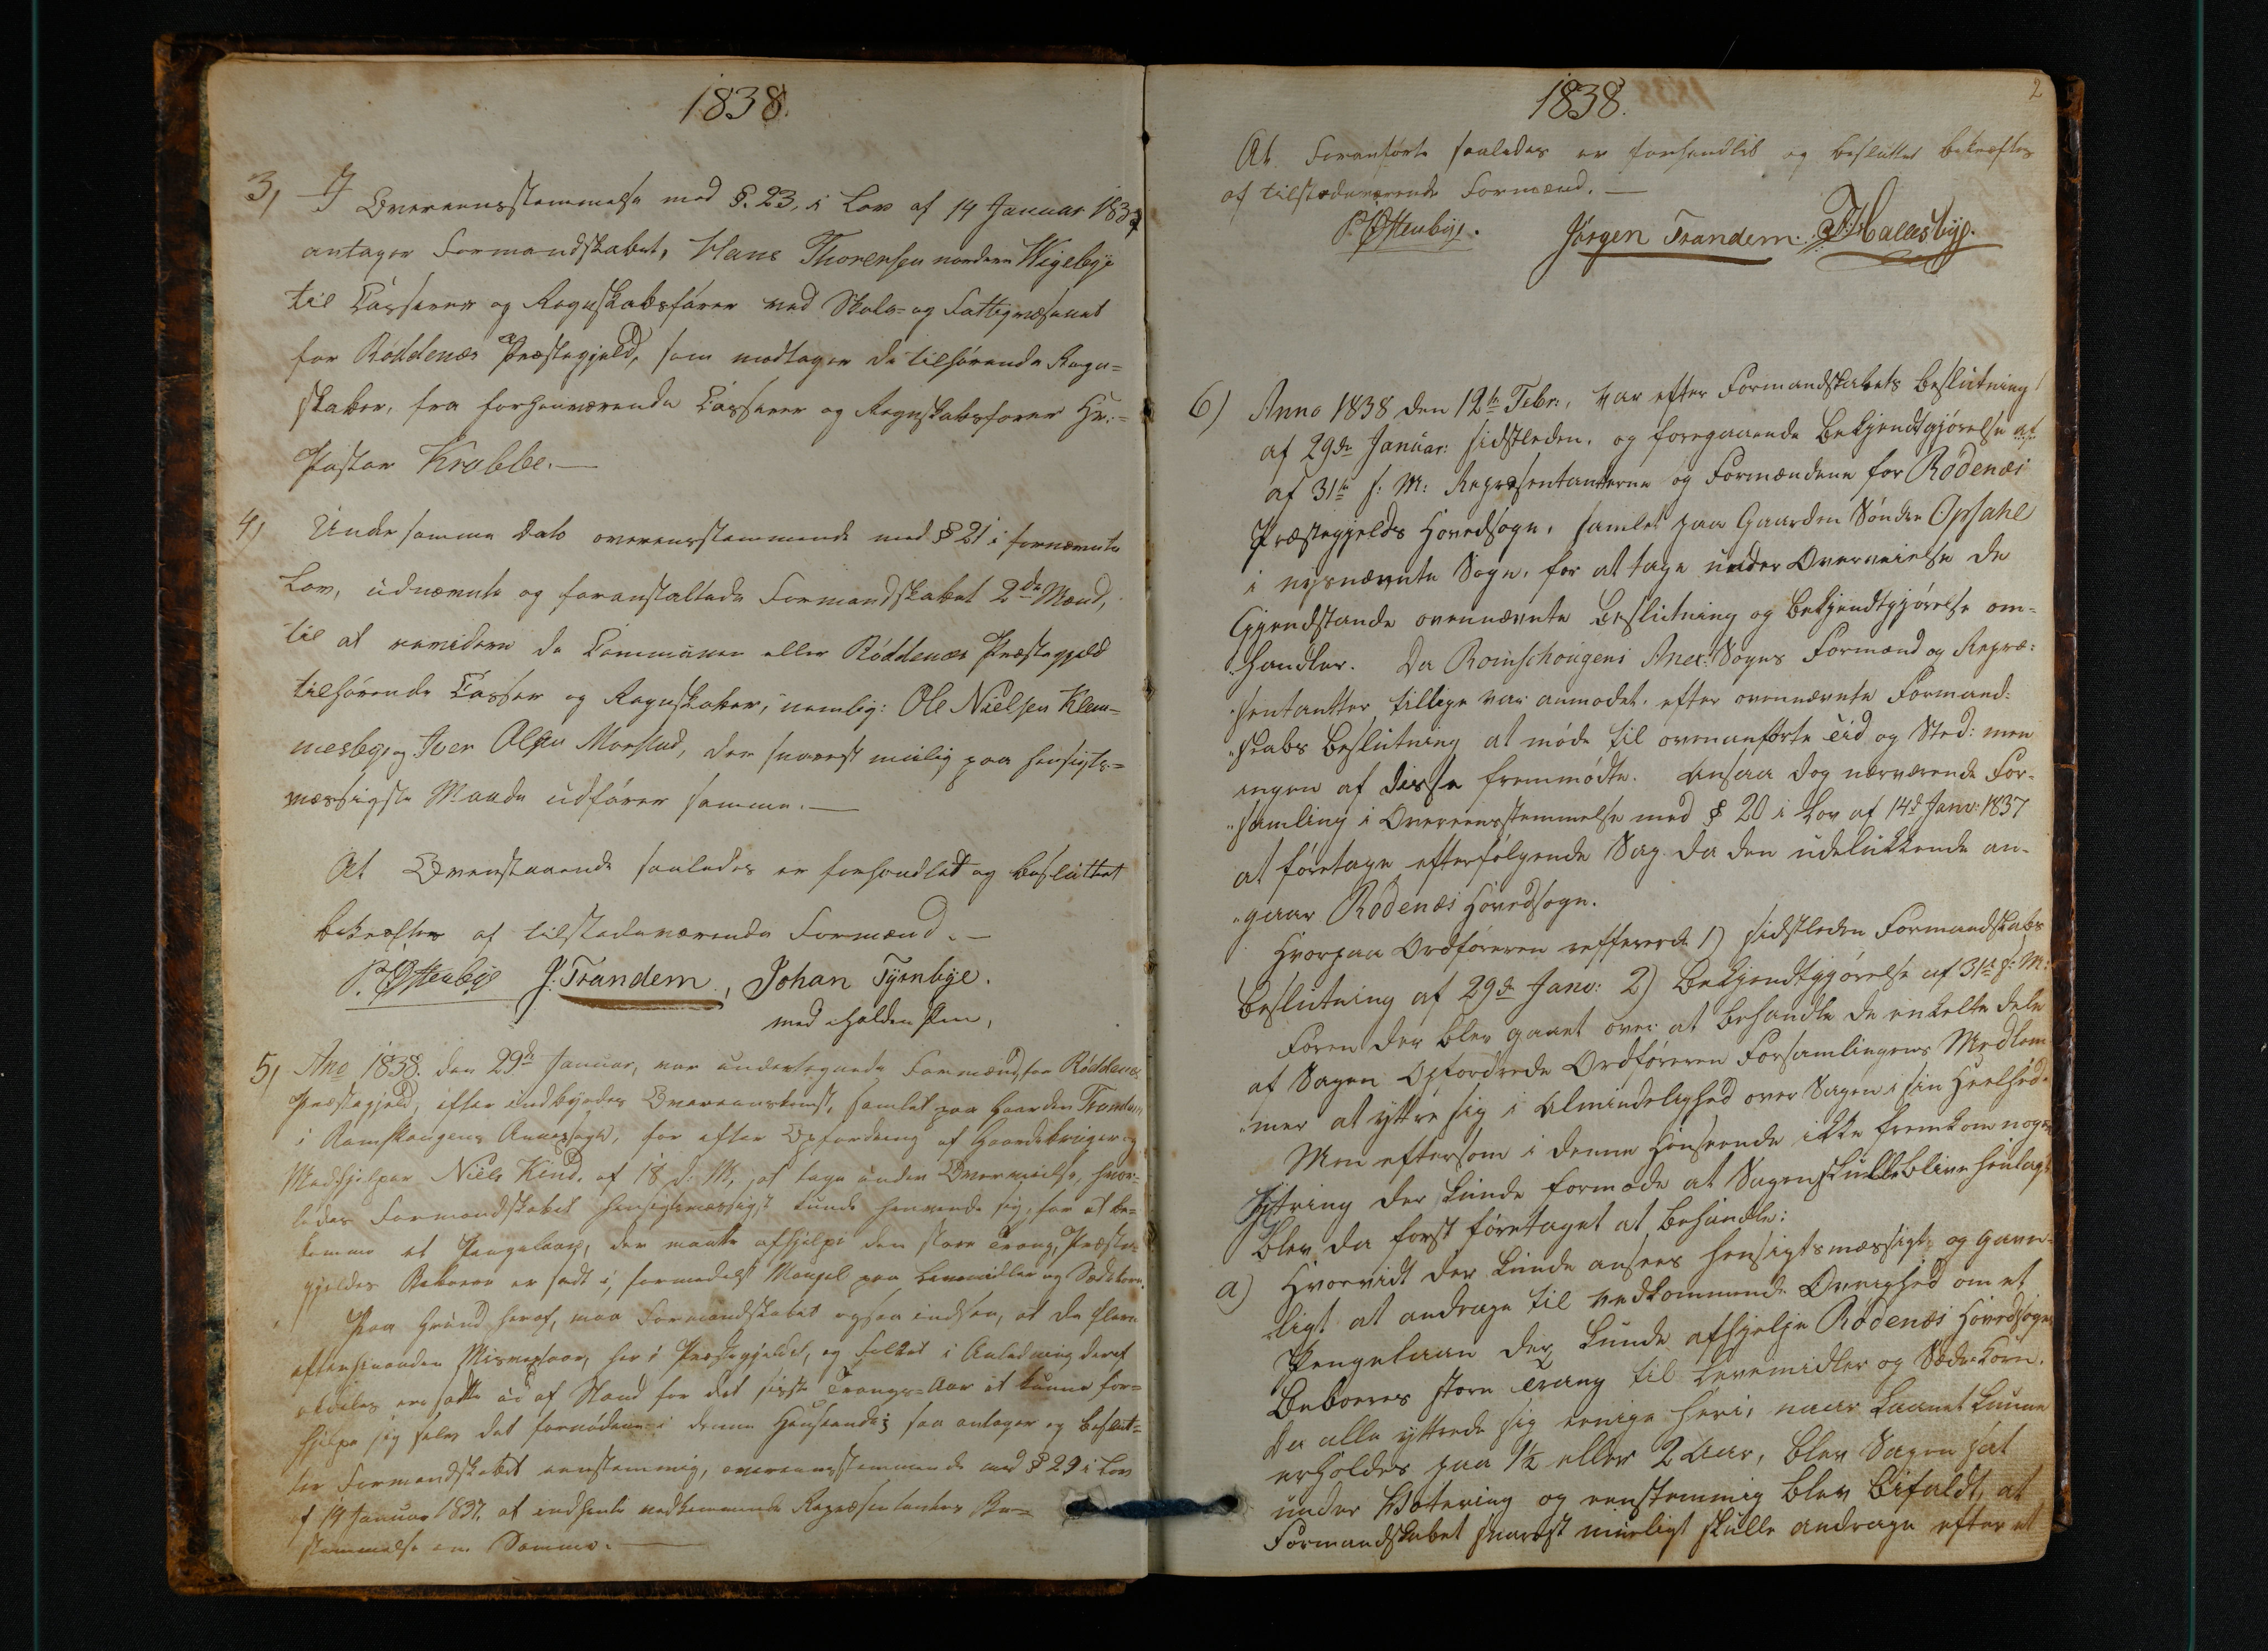 1838.
3, I Overeensstemmelse med §. 23, i Lov af 14 Januar 1837
antager Formandskabet, Hans Thoresen nordre Wigebye
til Casserer og Regnskabsfører ved Skole- og Fattigvæsenet
for Röddenæs Præstegjeld, som modtager de tilhörende Regn=
skaber, fra forhenværende Casserer og Regnskabsförer Hr:=
Pastor Krabbe.—
4, Under samme Dato overensstemmende med § 21 i fornævnte
Lov, udnævnte og foranstaltede Formandskabet 2de Mænd,
til at revidere de Communen eller Röddenæs Præstegjeld
tilhörende Casser og Regnskaber, nemlig: Ole Nielsen Klem=
mesbye og Iver Olsen Morstad, der snarest mulig paa hensigts=
mæssigste Maade udförer samme.—
At Ovenstaaende saaledes er forhandlet og besluttet
bekræftes af tilstedeværende Formænd.—
P. Östenbye J. Trandem, Johan Tyrnbye.
med iholden Pen,
5, Ano 1838. den 29de Januar, var undertegnede Formænd for Röddenæs
Præstegjeld, efter indbyrdes Overeenskomst, samlet paa Gaarden Trandem
i Römskougens Annexsogn, for efter Opfordring af Gaardebruger og
Medhjelper Niels Kind, af 18 d: M, at tage under Overveielse, hvor=
ledes Formandskabet hensigtsmæssigst kunde henvende sig, for at be=
komme et Pengelaan, der maatte afhjelpe den store Trang, Præste=
gjeldets Beboere er sadt i, formedelst Mangel paa Levemidler og Sædekorn.
Paa Grund heraf, maa Formandskabet ogsaa indsee, at de flere
efterhinanden Misvextaar, her i Præstegjeldet, og Folket i Anledning deraf
aldeles ere satte ud af Stand for det sidste Trangs=Aar at kunne for=
hjelpe sig selv det fornödne i denne Henseende; saa antager og beslut=
ter Formandskabet eenstemmig, overensstemmende med § 29 i Lov
af 14 Januar 1837, at indhente vedkommende Repræsentanters Be=
stemmelse om Samme.—
2
1838.
At Foranförte saaledes er forhandlet og besluttet bekræftes
af tilstedeværende Formænd.—
P. Östenbye. Jörgen Trandem. Hallesbye.
6) Anno 1838 den 12te Febr:, var efter Formandskabets Beslutning
af 29de Januar: sidstleden, og foregaaende Bekjendtgjörelse af
af 31te f: M: Repræsentanterne og Formændene for Rödenæs
Præstegjelds Hovedsogn, samlet paa Gaarden Söndre Opsahl
i nysnævnte Sogn, for at tage under Overveielse de
Gjendstande ovennævnte Beslutning og Bekjendtgjörelse om=
handler. Da Römschougens Anex: Sogns Formænd og Repræ=
sentantter tillige var anmodet, efter ovennævnte Formand=
skabs Beslutning at möde til ovenanförte Tid og Sted: men
ingen af disse fremmödte. Ansaa dog nærværende For=
samling i Overeensstemmelse med § 20 i Lov af 14d Janu: 1837
at foretage efterfölgende Sag da den udelukkende an=
gaar Rödenæs Hovedsogn.
Hvorpaa Ordföreren refferede 1) sidstleden Formandskabs
Beslutning af 29de Janu: 2) Bekjendtgjörelse af 31te f: M:
Foren der blev gaaet over at behandle de enkelte dele
af Sagen Opfordrede Ordföreren Forsamlingens Medlem=
mer at yttre sig i Almindelighed over Sagen i sin Heelhed.
Men eftersom i denne Henseende ikke fremkom nogen
Yttring der kunde formode at Sagen skulle blive henlagt
Blev da först foretaget at behandle:
a) Hvorvidt der kunde ansees hensigtsmæssigt og gavn=
ligt at andrage til vedkommende Övrighed om et
Pengelaan der kunde afhjelpe Rödenæs Hovedsogns
Beboeres store Trang til Levemidler og Sæde-Korn.
Da alle yttrede sig eenige heri, naar Laanet kunne
erholdes paa 1½ eller 2 Aar, blev Sagen sat
under Votering og eenstemmig blev bifaldt, at
Formandskabet snarest muligt skulle andrage efter et